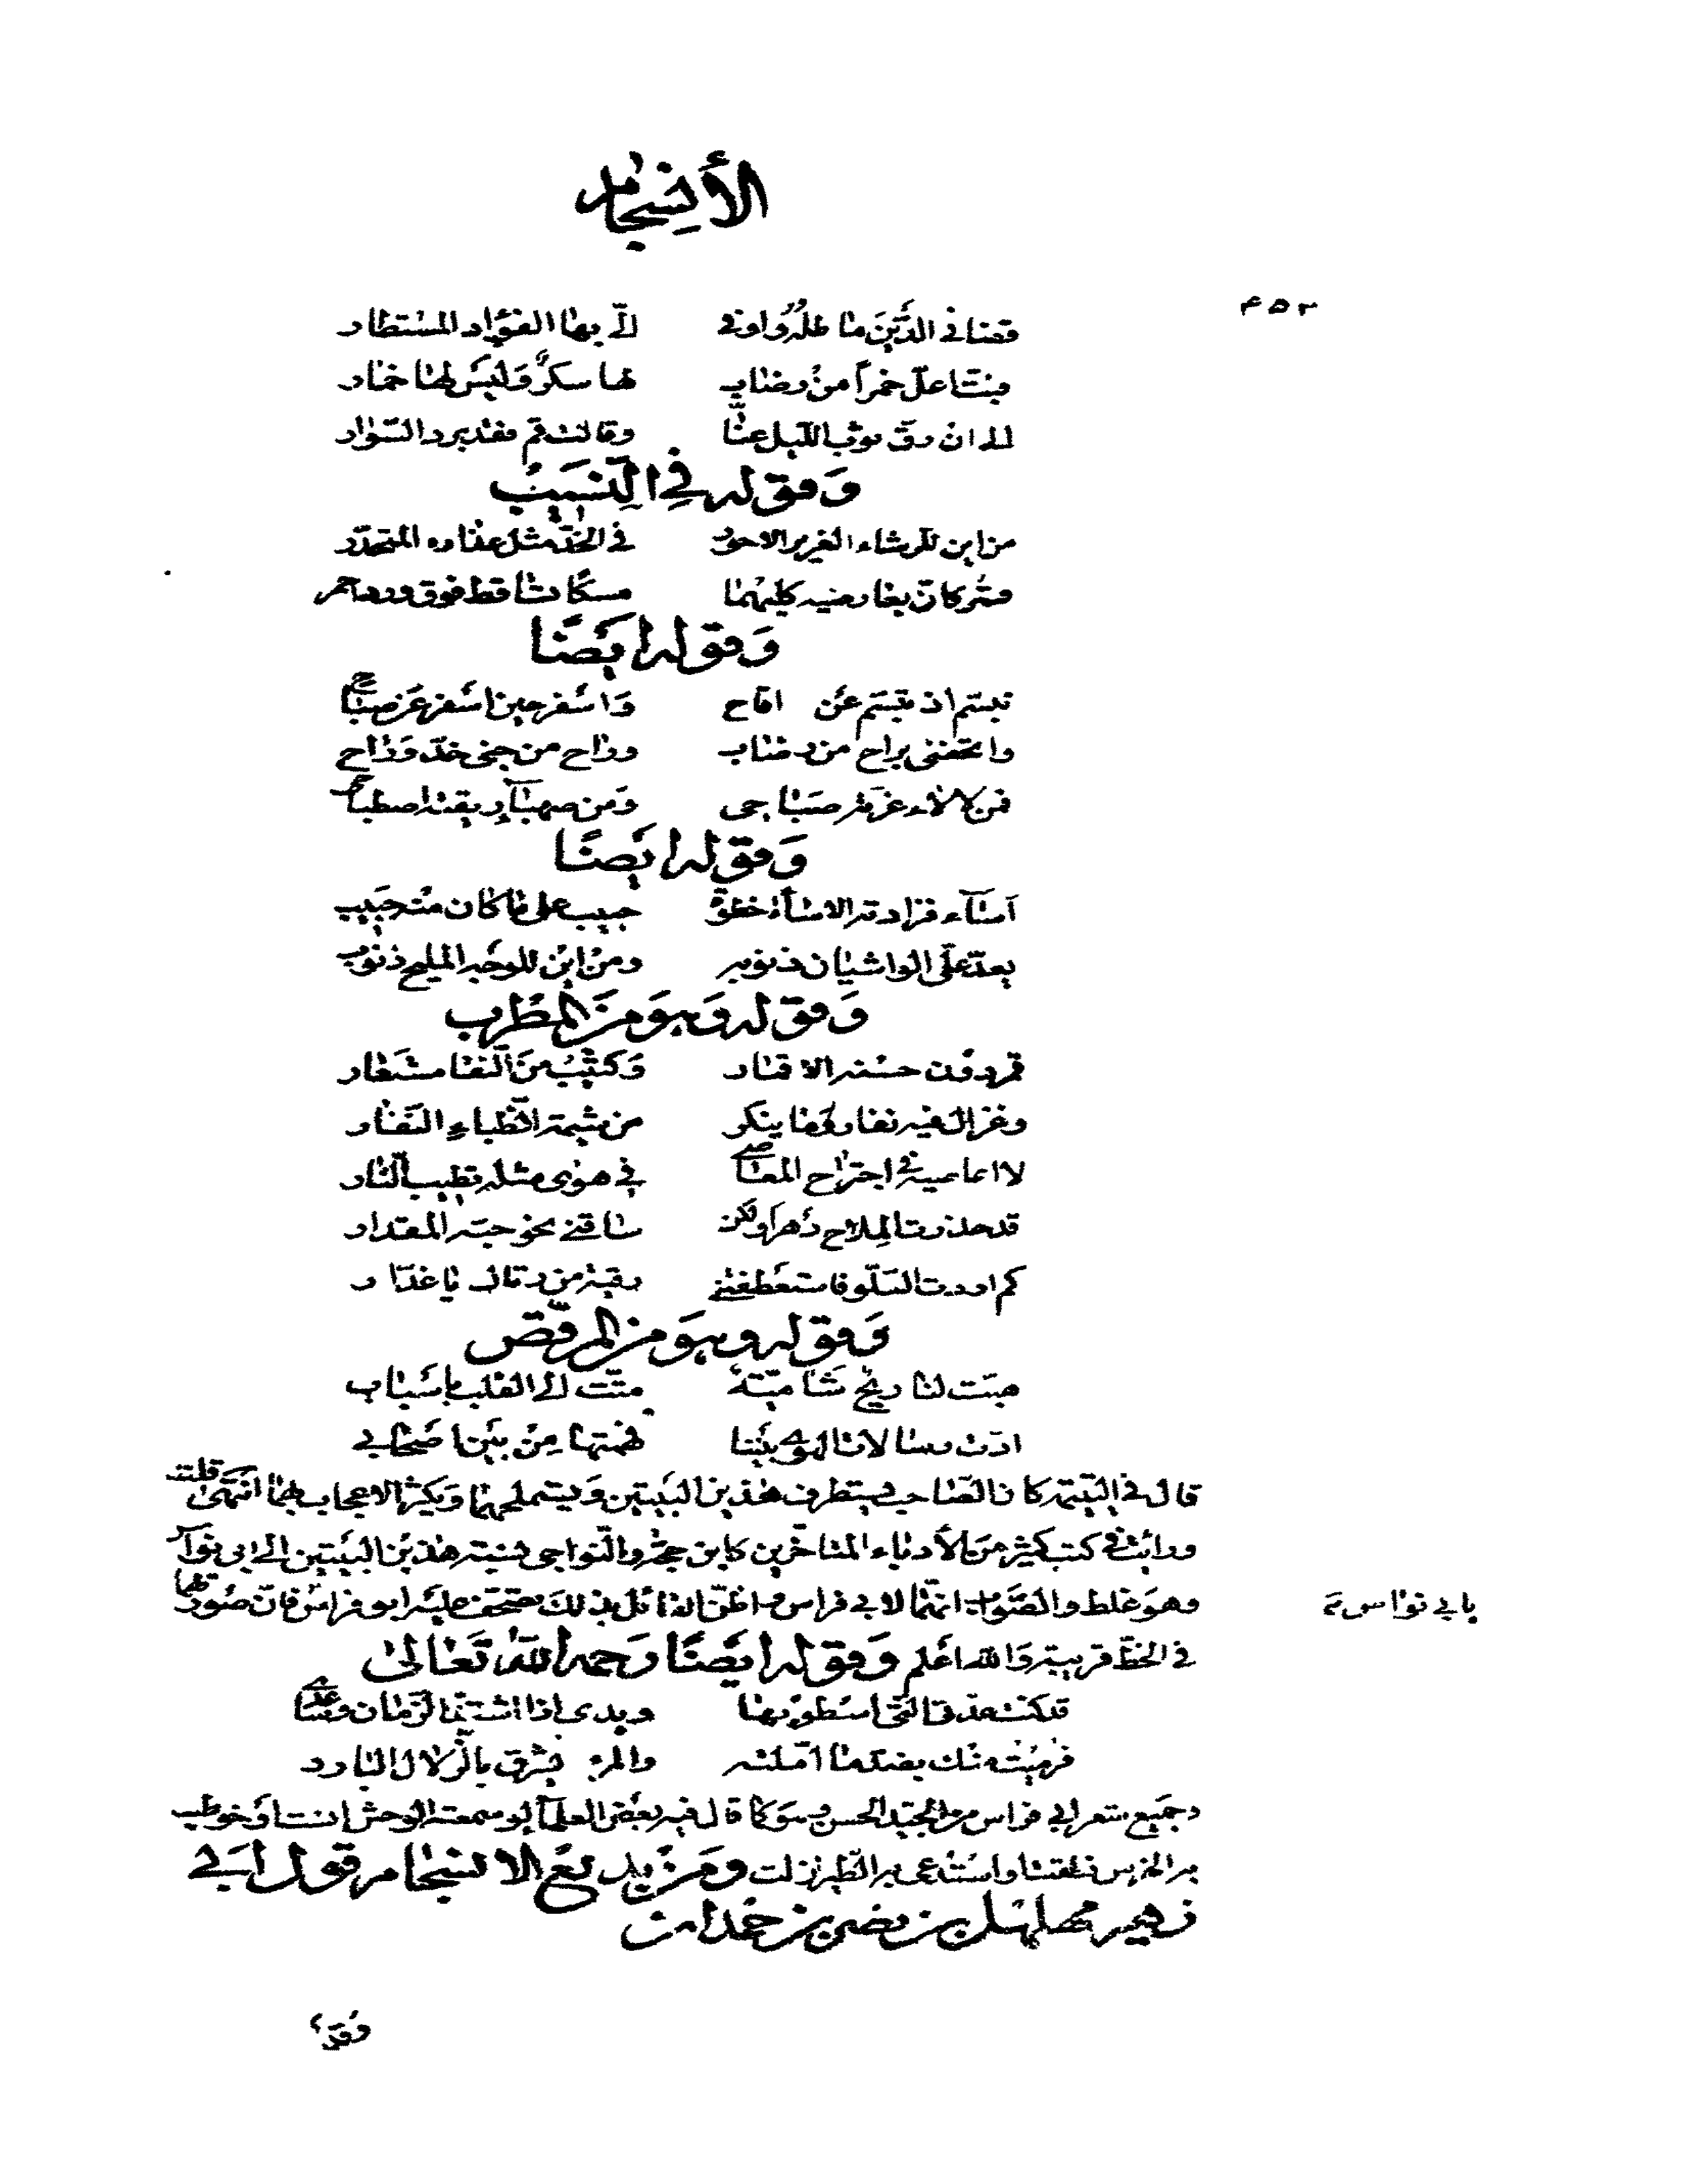 الأنسجام
٤٥٣
قضاني الدَّين ماطله وَاوفى إليّ بها الفؤاد المستطار
فبتنا علّ خمراً من رضاب لها سكرٌ وَليسَ لها خمار
الى ان رقّ ثوب الليل عنّا وقالت قم فقد برد السّوار
وَقوله في النّسيب
من اين للرشاء الغرير الاحور في الخدّ مثل عذاره المتحدّر
قمر كان بعارضيه كليهما مسكًا تساقط فوق ورد احمر
وَقوله ايضًا
تبسّم اذ تبسّم عن اقاح وَاسفر حين اسفر عن صباح
واتحفني براح من رضاب وراح من جنى خدّ وَراح
فمن لألاء غرّته صباحي وَمن صهباء ريقته اصطباحي
وَقوله ايضًا
اساء فزادته الاساءة حظوة حبيب على ما كان منه حبيب
يعدّ عليّ الواشيان ذنوبه ومن اين للوجه المليح ذنوب
وَقوله وَهوَ منَ المطرب
قمر دون حسنه الاقمار وَكثيبٌ منَ النّقا مستعار
وغزال فيه نفار وَما ينكر من شيمة الظّباءِ النّفار
لا اعاصيه في اجتراح المعاصي في هوى مثله تطيب النّار
قد حذرت الملاح دَهراً ولكن ساقني نحو حبّه المقدار
كم اردت السّلو فاستعطفتني رقية من رقاك يا غدّار
وَقوله وهوَ من المرقّص
هبّت لنا ريح شَاميّة متّت الى القلب باسباب
ادّت رسالات الهوى بيننا فهمتها مِن بَين اصحابي
قال في اليتيمة كان الصّاحب يستظرف هذين البيتين وَيستملحهما وَيكثر الاعجاب بهما انتهى قلت
ورأيت في كتب كثير منَ الأدباء المتاخّرين كابن حجّة والنّواجي نسبة هذين البيتين الى ابي نواس
وهوَ غلط والصّواب انّهما لابي فراس واظنّ القائل بذلك تصحّف عليه ابو فراس فانّ صورتهما
بابي نواس
في الخطّ قريبة وَالله اعلم وَقوله ايضًا رَحمه الله تَعالى
قد كنت عدّتي الّتي اسطو بها ويدي اذا اشتدّ الزّمان وساعدي
فرميت منك بضدّ ما امّلته والمرء يشرق بالزّلال البارد
وجَميع شعر ابي فراس من الجيّد الحسن وهوَ كما قال فيه بعض العلماء لو سمعته الوحش انست اوْ خوطبت
به الخرس نطقت او استدعي به الطّير نزلت وَمن بديع الانسجام قول ابي
زهير مهلهل بن نصر بن حمدان